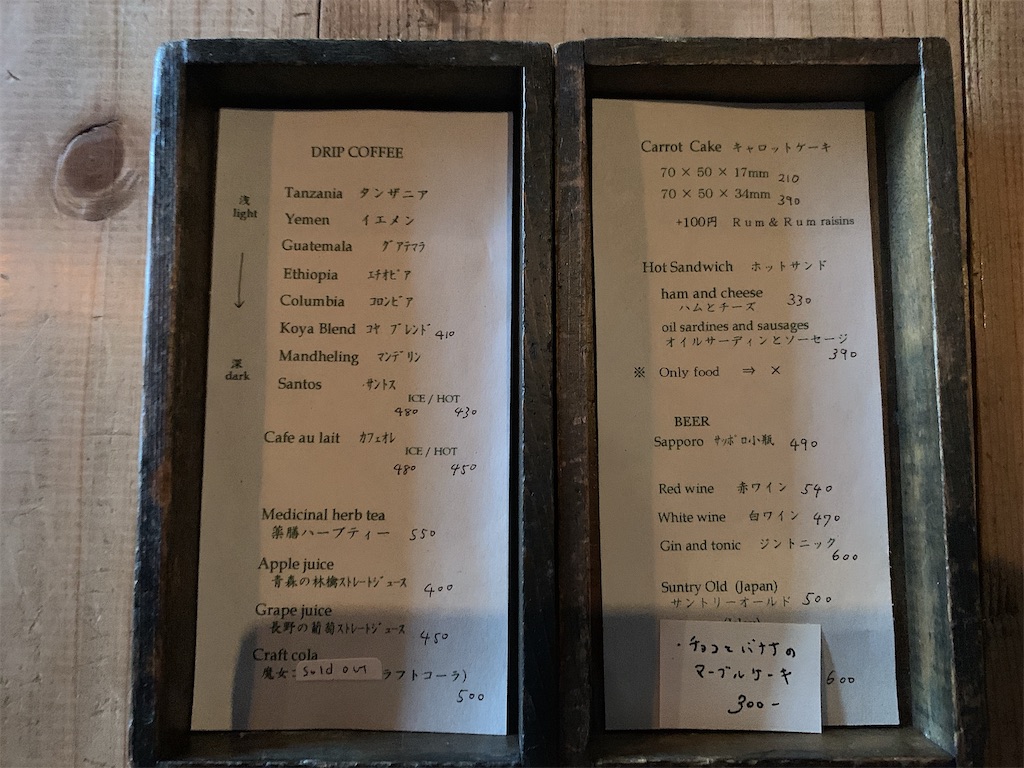 DRIP COFFEE
浅
light
深
dark
Tanzania タンザニア
Yemen イエメン
Guatemala グアテマラ
Ethiopia エチオピア
Columbia コロンビア
Koya Blend コヤ ブレンド 410
Mandheling マンデリン
Santos サントス
ICE / HOT
480 430
Cafe au lait カフェオレ
ICE / HOT
480 450
Medicinal herb tea
薬膳ハーブティー 550
Apple juice
青森の林檎ストレートジュース 400
Grape juice
長野の葡萄ストレートジュース 450
Craft cola
魔女 Sold out ラフトコーラ)
500
Carrot Cake キャロットケーキ
70 × 50 × 17mm 210
70 × 50 × 34mm 390
+100円 Rum & Rum raisins
Hot Sandwich ホットサンド
ham and cheese 330
ハムとチーズ
oil sardines and sausages
オイルサーディンとソーセージ
390
※ Only food ⇒ ×
BEER
Sapporo サッポロ小瓶 490
Red wine 赤ワイン 540
White wine 白ワイン 470
Gin and tonic ジントニック
600
Suntry Old (Japan)
サントリーオールド 500
・チョコとバナナの
マーブルケーキ 600
300-